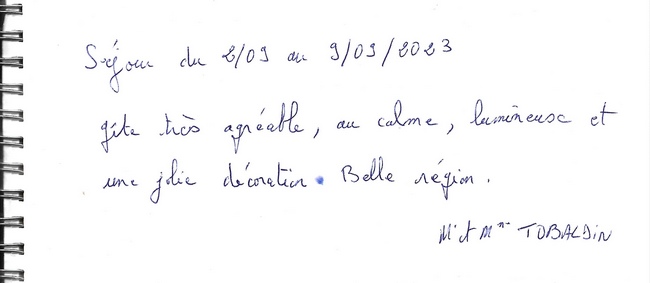 Séjour du 2/09 au 9/09/2023
gîte très agréable, au calme, lumineuse et
une jolie décoration. Belle région.
Mr et Mme TOBALDIN